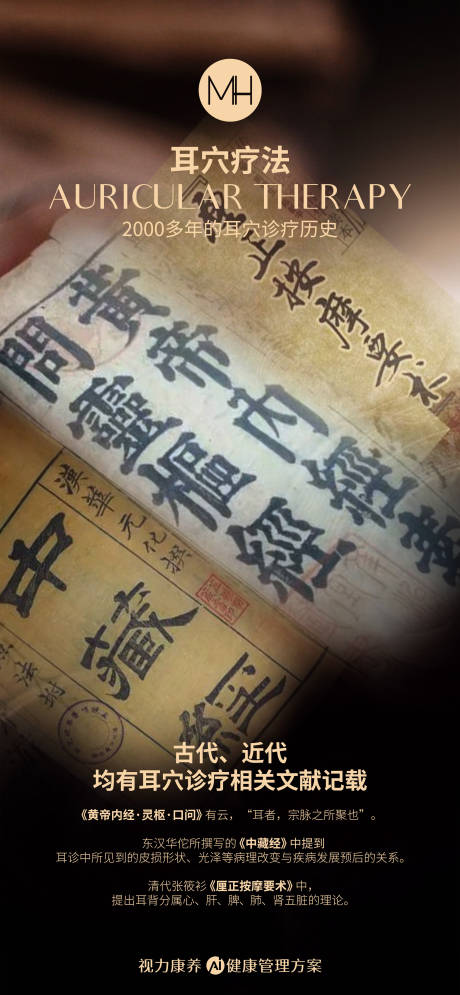 MH
耳穴疗法
AURICULAR THERAPY
2000多年的耳穴诊疗历史
厘正按摩要术
黃帝內經素
問靈樞經
漢華元化撰
中藏經
古代、近代
均有耳穴诊疗相关文献记载
《黄帝内经·灵枢·口问》有云，“耳者，宗脉之所聚也”。
东汉华佗所撰写的《中藏经》中提到
耳诊中所见到的皮损形状、光泽等病理改变与疾病发展预后的关系。
清代张筱衫《厘正按摩要术》中，
提出耳背分属心、肝、脾、肺、肾五脏的理论。
视力康养 AI 健康管理方案